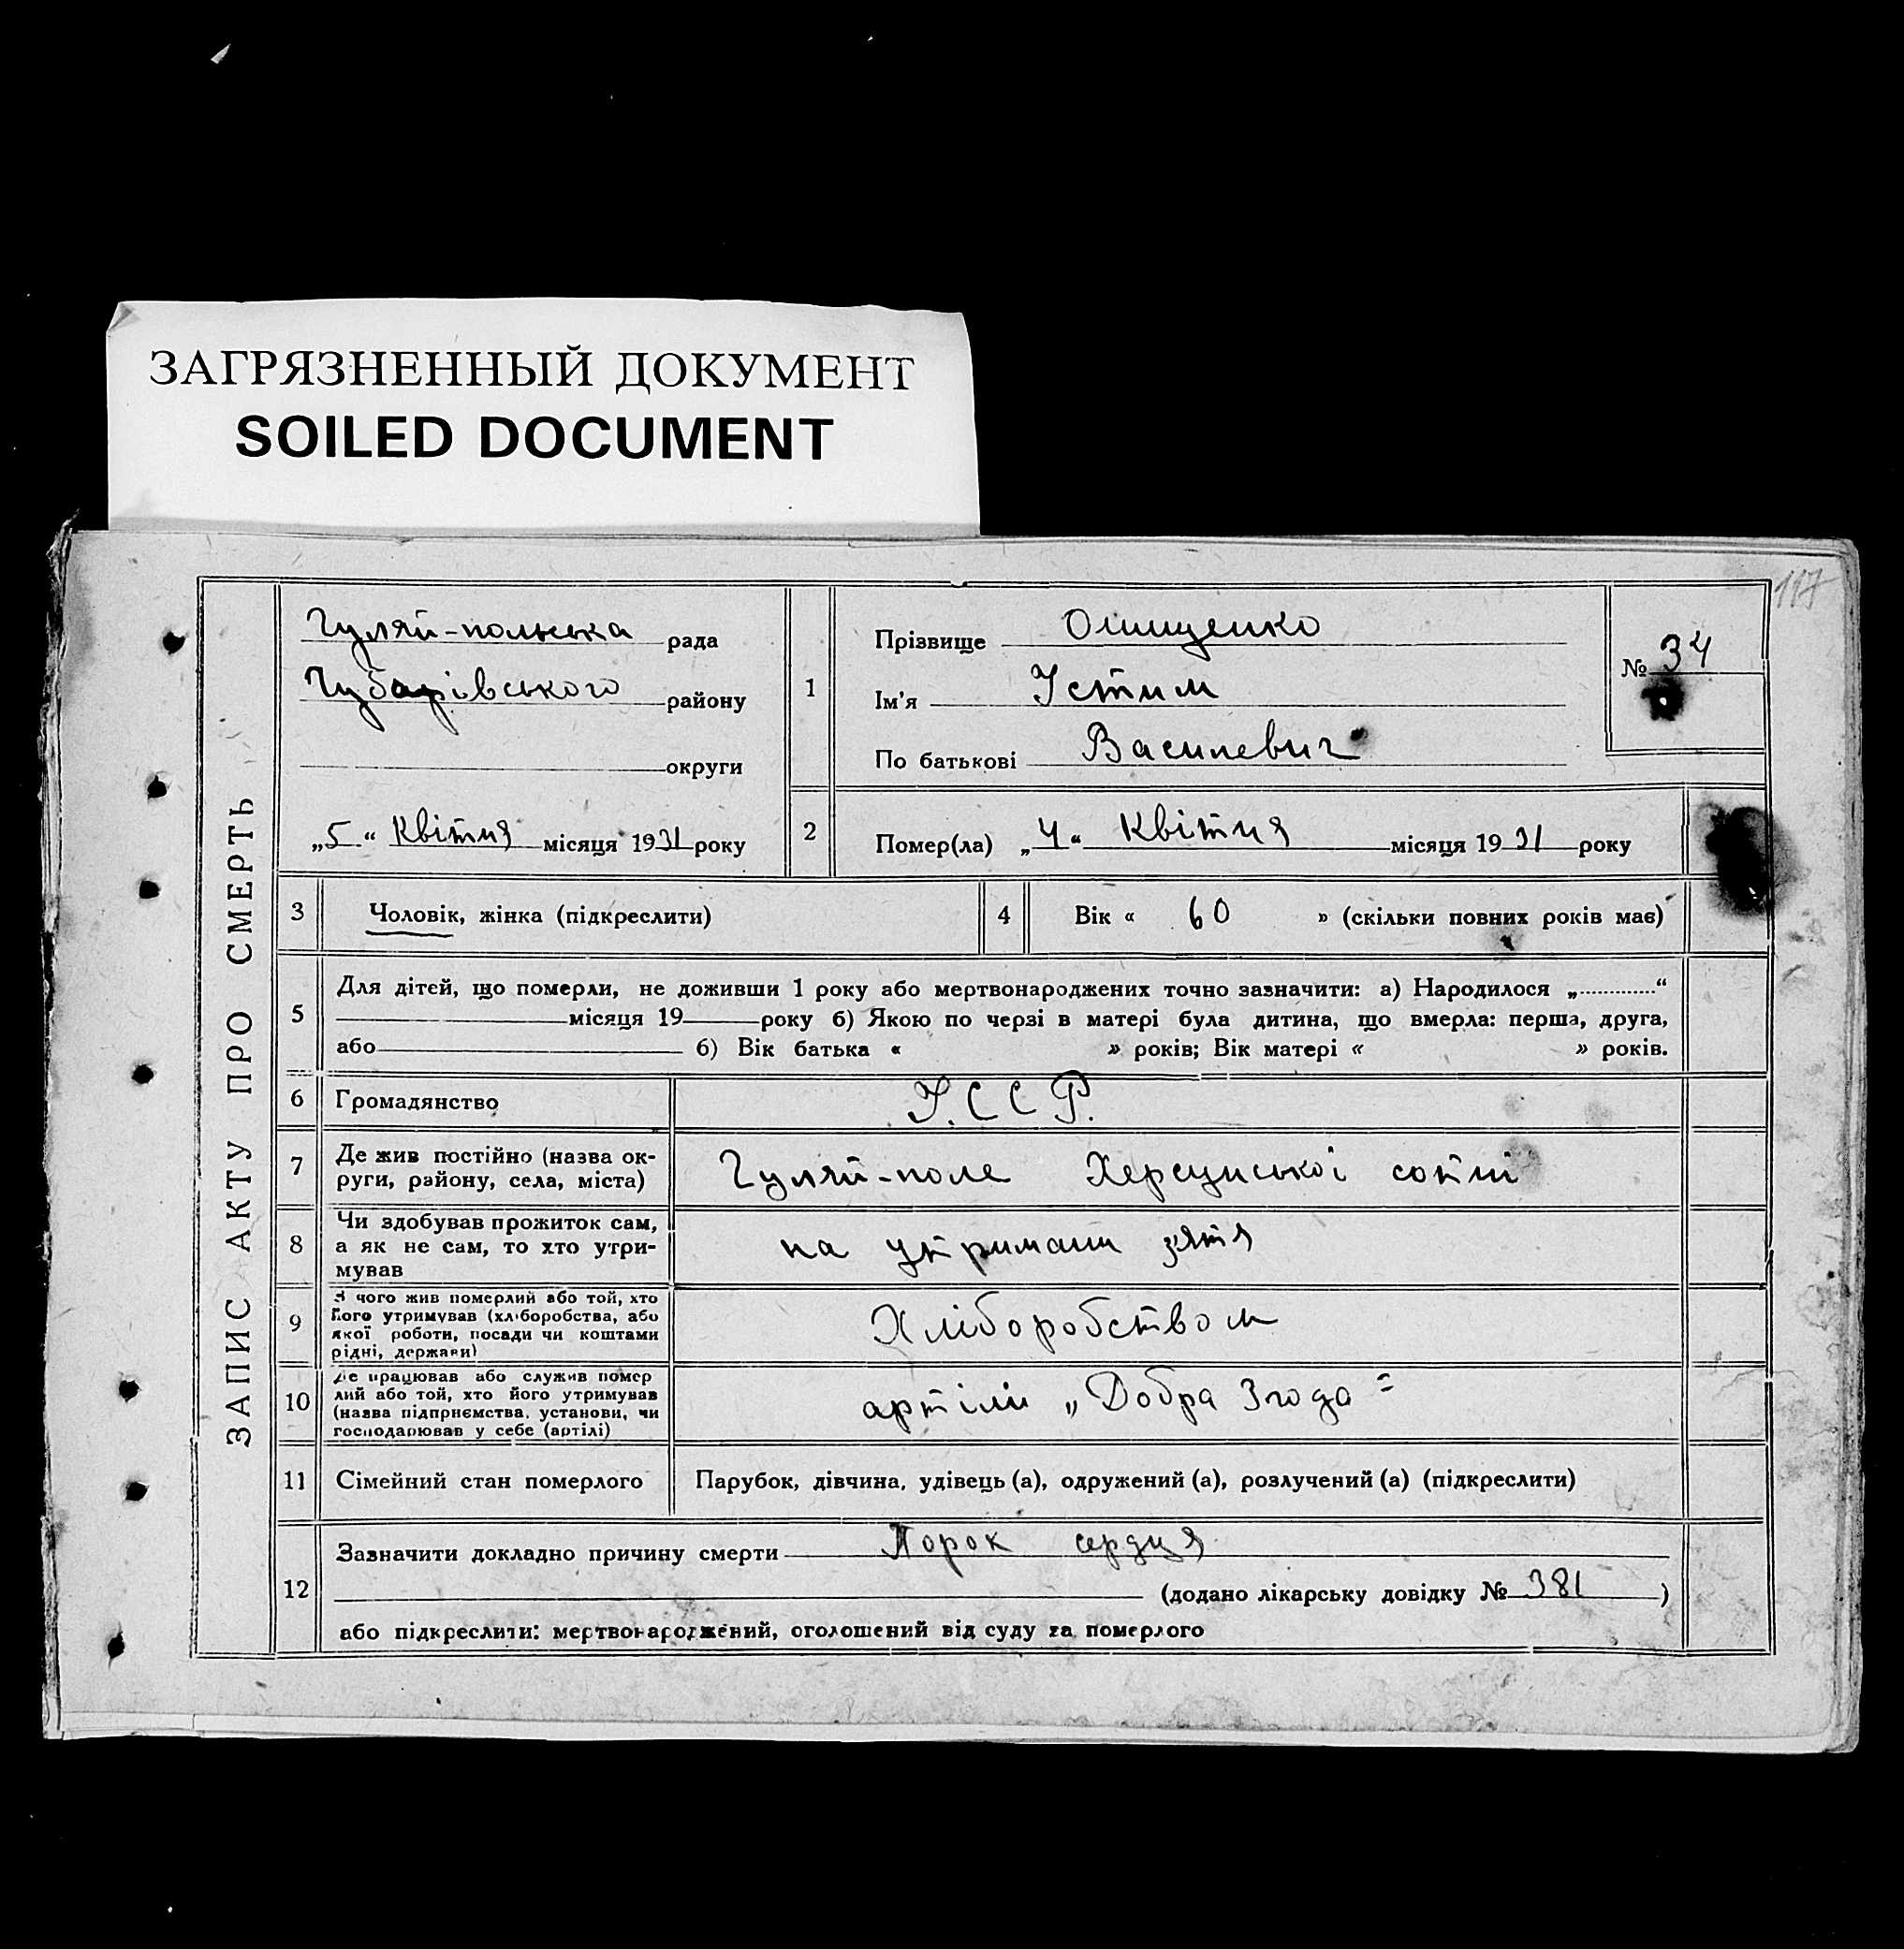 ЗАГРЯЗНЕННЫЙ ДОКУМЕНТ
SOILED DOCUMENT
117
ЗАПИС АКТУ ПРО СМЕРТЬ
Гуляй-польська рада
Чубарівського району
округи
„5“ Квітня місяця 1931 року
1
Прізвище Онищенко
Ім'я Устим
По батькові Василевич
№ 34
2
Помер(ла) „4“ Квітня місяця 1931 року
3 Чоловік, жінка (підкреслити)
4 Вік « 60 » (скільки повних років має)
5
Для дітей, що померли, не доживши 1 року або мертвонароджених точно зазначити: а) Народилося „............“
місяця 19 року б) Якою по черзі в матері була дитина, що вмерла: перша, друга,
або б) Вік батька « » років; Вік матері « » років.
6 Громадянство У.С.С.Р.
7 Де жив постійно (назва ок-
руги, району, села, міста)
Гуляй-поле Херсунської сотні
8 Чи здобував прожиток сам,
а як не сам, то хто утри-
мував
на утримани зятя
9 З чого жив померлий або той, хто
його утримував (хліборобства, або
якої роботи, посади чи коштами
рідні, держави)
Хліборобством
10 Де працював або служив помер
лий або той, хто його утримував
(назва підприємства, установи, чи
господарював у себе (артілі)
артіли „Добра Згода"
11 Сімейний стан померлого Парубок, дівчина, удівець (а), одружений (а), розлучений (а) (підкреслити)
12
Зазначити докладно причину смерти Порок сердця
(додано лікарську довідку № 381 )
або підкреслити: мертвонароджений, оголошений від суду за померлого